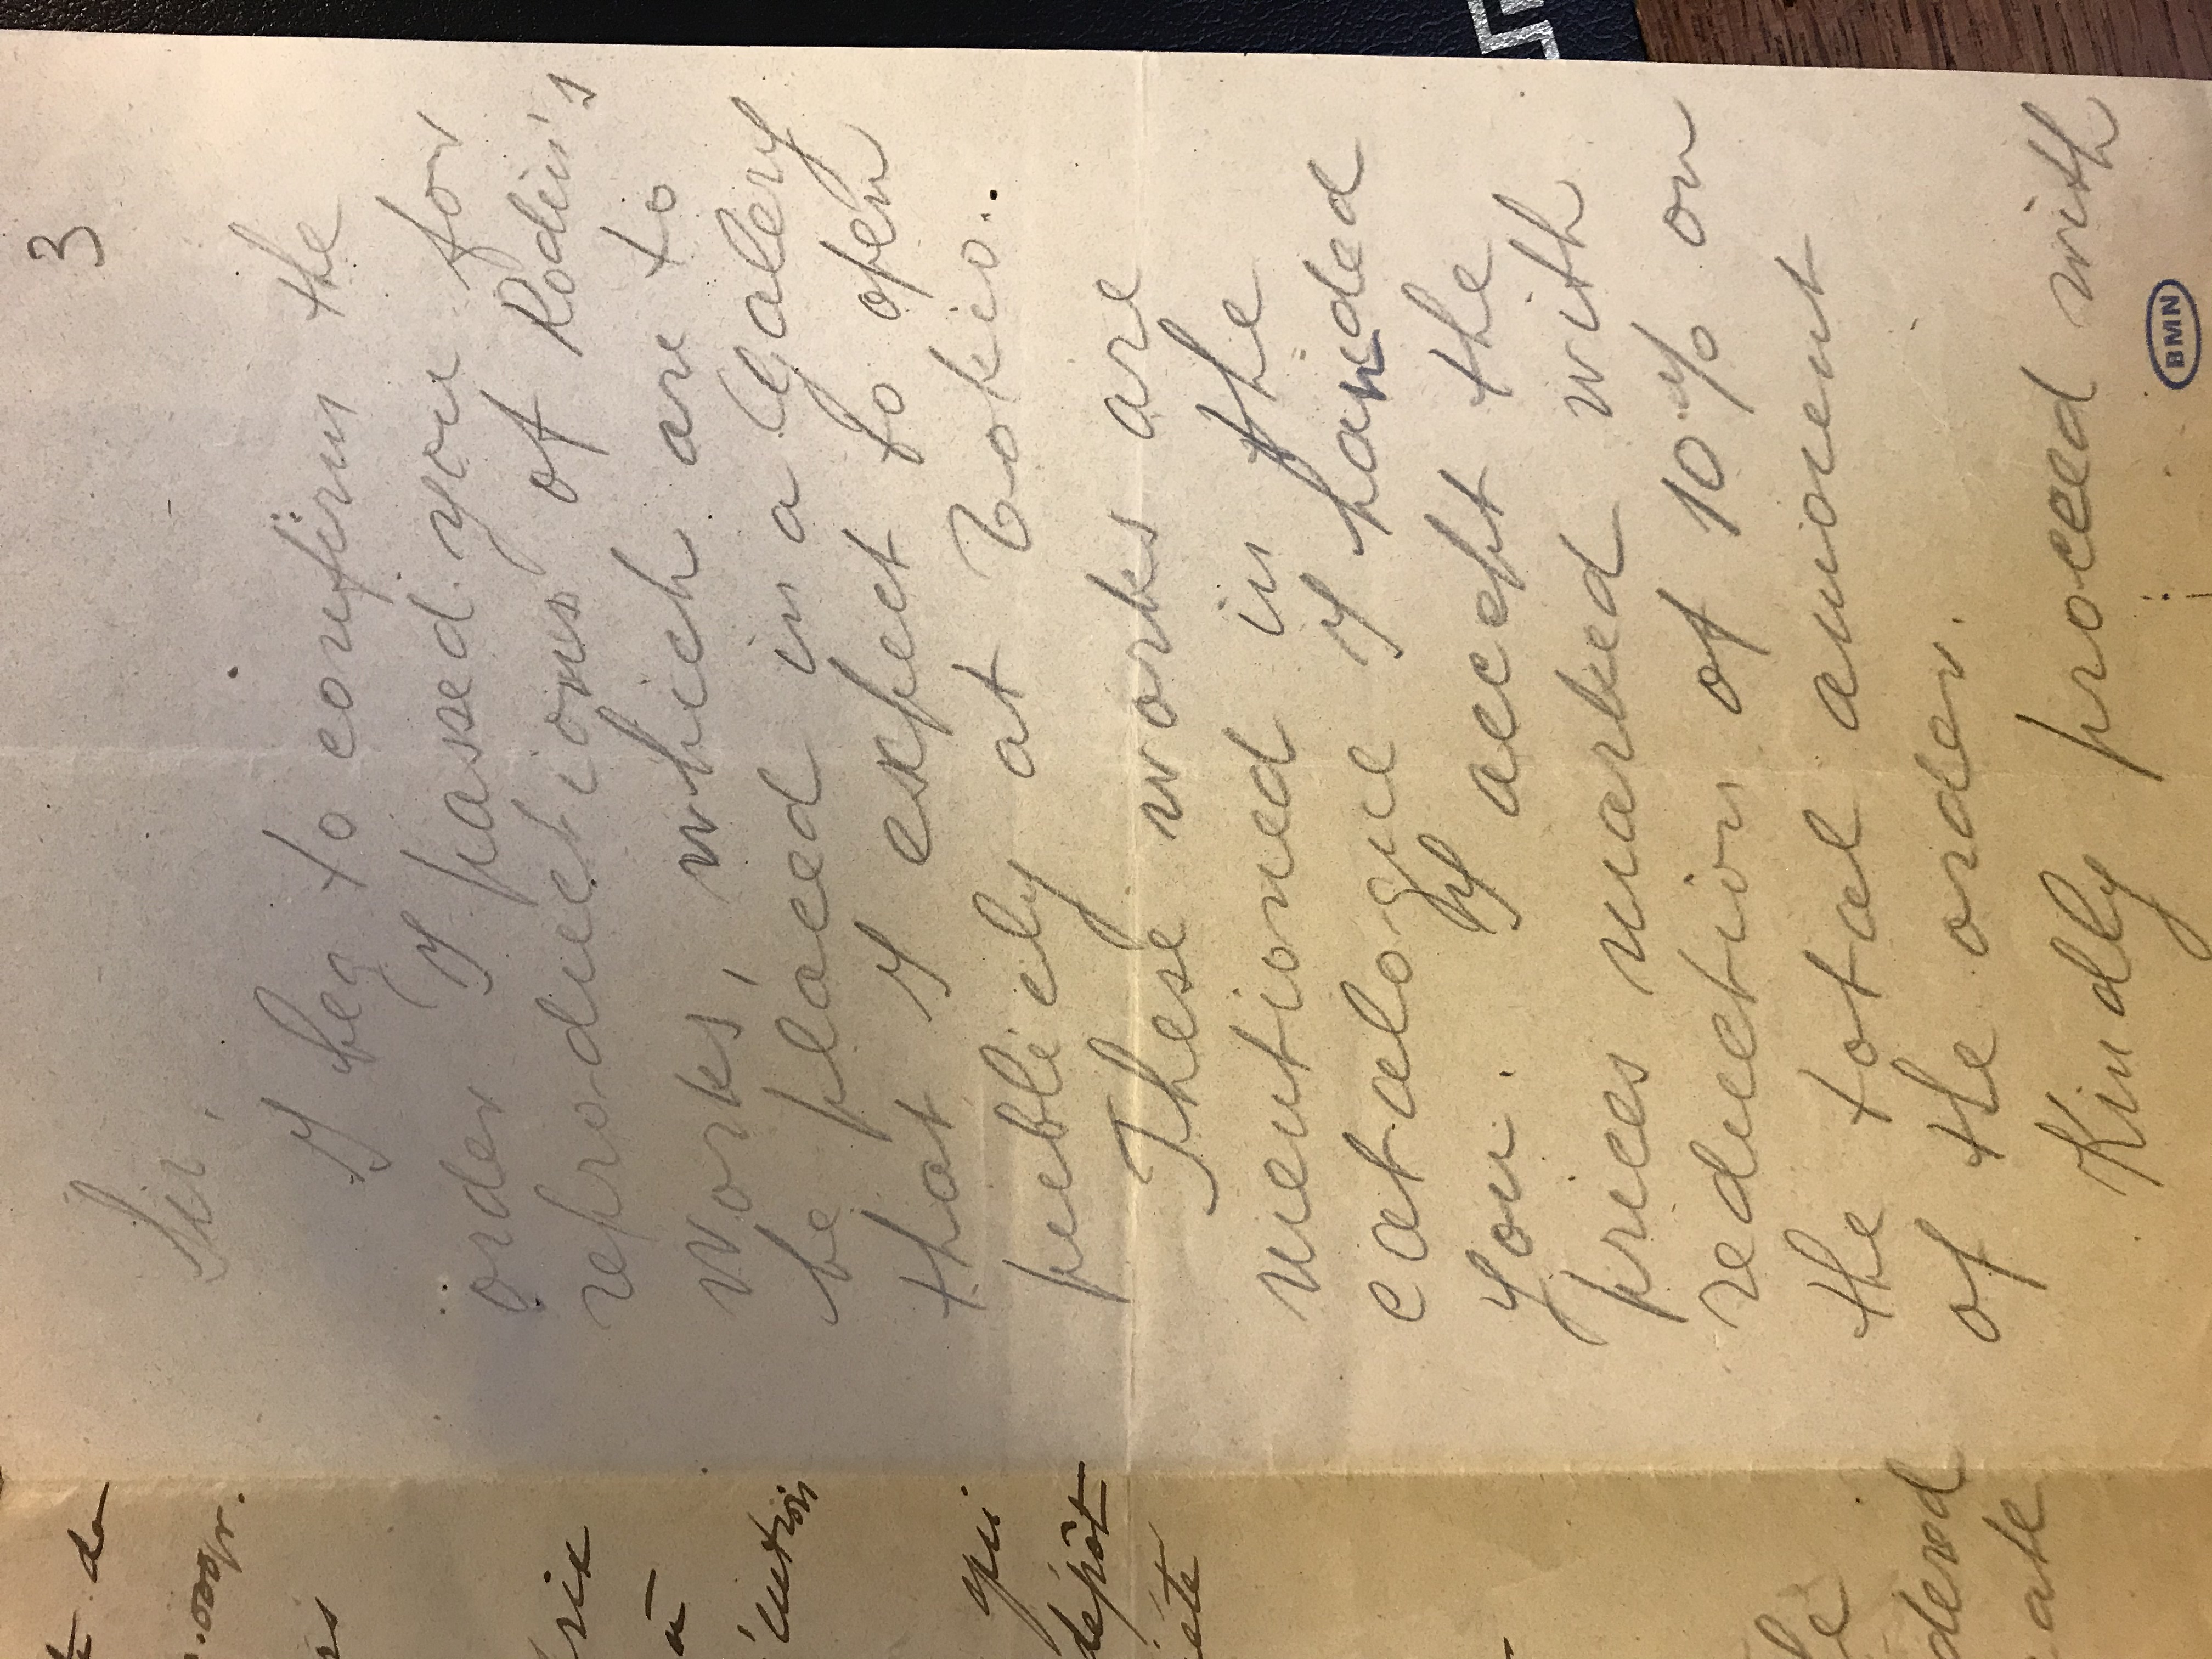 3
Sir,
I beg to confirm the
order I passed you for
reproductions of Rodin's
works, which are to
be placed in a Galery
that I expect to open
publicly at Tokio.
These works are
mentioned in the
catalogue I handed
you. I accept the
prices marked with
reduction of 10% on
the total amount
of the order.
Kindly proceed with
BMN
de
à
qui
dépôt